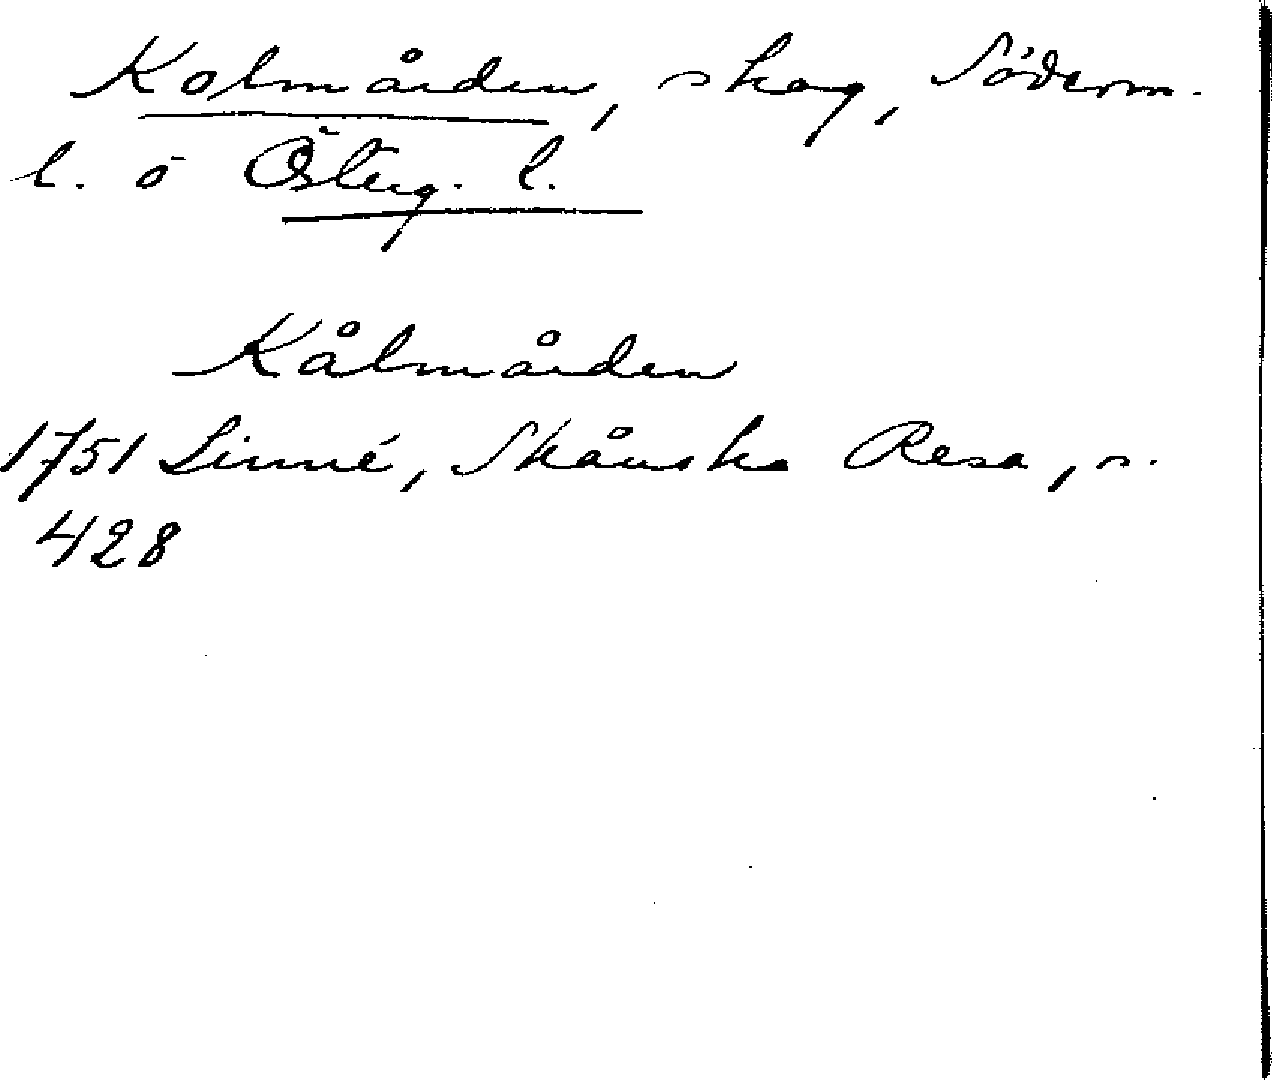 Kolmården, skog, Söderm.
l. o Österg. l.
Kålmården
1751 Linné, Skånska Resa, s.
428